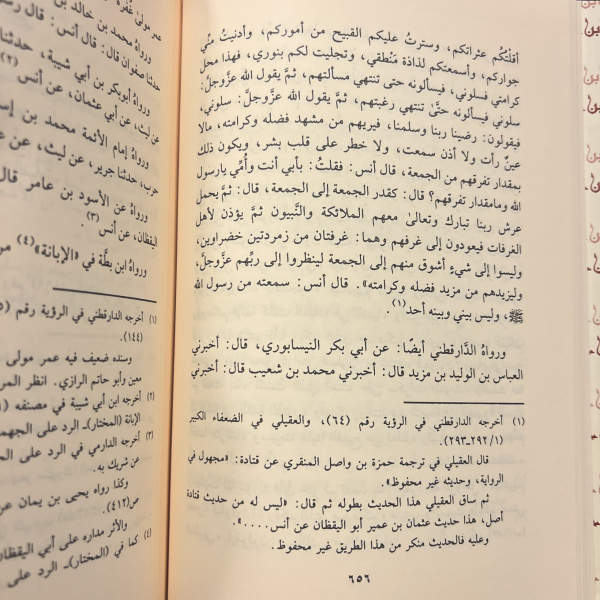 أقلتُكم عثراتكم، وسترتُ عليكم القبيح من أموركم، وأدنيتُ منِّي
جواركم، وأسمعتكم لذاذة مَنْطقي، وتجليت لكم بنوري، فهذا محل
كرامتي فسلوني، فيسألونه حتى تنتهي مسألتهم، ثمَّ يقول الله عزَّوجلَّ:
سلوني فيسألونه حتَّى تنتهي رغبتهم، ثمَّ يقول الله عزَّوجلَّ: سلوني،
فيقولون: رضينا ربنا وسلمنا، فيريهم من مشهد فضله وكرامته، مالا
عينٌ رأت ولا أذن سمعت، ولا خطر على قلب بشر، ويكون ذلك
بمقدار تفرقهم من الجمعة، قال أنس: فقلتُ: بأبي أنت وأُمِّي يارسول
الله ومامقدار تفرقهم؟ قال: كقدر الجمعة إلى الجمعة، قال: ثمَّ يحمل
عرش ربنا تبارك وتعالىٰ معهم الملائكة والنَّبيون ثمَّ يؤذن لأهل
الغرفات فيعودون إلى غرفهم وهما: غرفتان من زمردتين خضراوين،
وليسوا إلى شيءٍ أشوق منهم إلى الجمعة لينظروا إلى ربِّهم عزَّوجلَّ،
وليزيدهم من مزيد فضله وكرامته». قال أنس: سمعته من رسول الله
ﷺ، وليس بيني وبينه أحد(١).
ورواهُ الدَّارقطني أيضًا: عن أبي بكر النيسابوري، قال: أخبرني
العباس بن الوليد بن مزيد قال: أخبرني محمد بن شعيب قال: أخبرني
(١) أخرجه الدارقطني في الرؤية رقم (٦٤)، والعقيلي في الضعفاء الكبير
(١/ ٢٩٢-٢٩٣).
قال العقيلي في ترجمة حمزة بن واصل المنقري عن قتادة: «مجهول في
الرواية، وحديثه غير محفوظ».
ثم ساق العقيلي هذا الحديث بطوله ثم قال: «ليس له من حديث قتادة
أصل، هذا حديث عثمان بن عمير أبو اليقظان عن أنس....».
وعليه فالحديث منكر من هذا الطريق غير محفوظ.
٦٥٦
عمر مولى غفرة
ورواهُ محمد بن خالد بن
حدثنا صفوان قال: قال أنس: قال رسو
ورواهُ أبوبكر بن أبي شيبة، حدثنا
عن ليث، عن أبي عثمان، عن أنس (٢)
ورواهُ إمام الأئمة محمد بن إس
حرب، حدثنا جرير، عن ليث، عن ع
ورواهُ عن الأسود بن عامر قال
اليقظان، عن أنس (٣).
ورواهُ ابن بطَّة في «الإبانة»(٤) من
(١) أخرجه الدارقطني في الرؤية رقم (٥
(١٤٤).
وسنده ضعيف فيه عمر مولى
معين وأبو حاتم الرازي. انظر المر
(٢) أخرجه ابن أبي شيبة في مصنفه (١
الإبانة (المختار)ـ الرد على الجهمـ
(٣) أخرجه الدارمي في الرد على الج
عن شريك به.
وكذا رواه يحيى بن يمان عن
ص(٤١٢).
والأثر مداره على أبي اليقظا
(٤) كما في (المختار)ـ الرد على